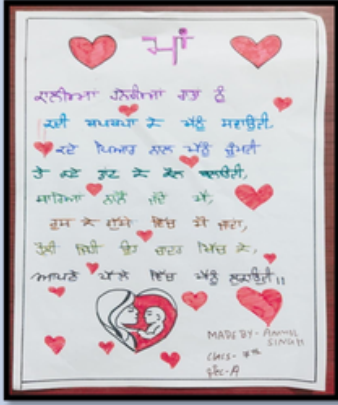 ਮਾਂ
ਕਾਲੀਆਂ ਹਨੇਰੀਆਂ ਰਾਤਾਂ ਨੂੰ
ਕਦੀ ਥਪਥਪਾ ਕੇ ਮੈਨੂੰ ਸਵਾਉਂਦੀ,
ਕਦੇ ਪਿਆਰ ਨਾਲ ਮੈਨੂੰ ਚੁੰਮਦੀ
ਤੇ ਕਦੇ ਘੁੱਟ ਕੇ ਗਲ ਲਾਉਂਦੀ,
ਸਾਰਿਆਂ ਨਾਲੋਂ ਜਦੋਂ ਮੈਂ,
ਰੁਸ ਕੇ ਗੁੱਸੇ ਵਿੱਚ ਸੌਂ ਜਾਂਦਾ,
ਹੌਲੀ ਜਿਹੀ ਫਿਰ ਚਾਦਰ ਖਿੱਚ ਕੇ,
ਆਪਣੇ ਪੱਲੇ ਵਿੱਚ ਮੈਨੂੰ ਲੁਕਾਉਂਦੀ।।
MADE BY- ANMOL
SINGH
Class- 7th
Sec-A